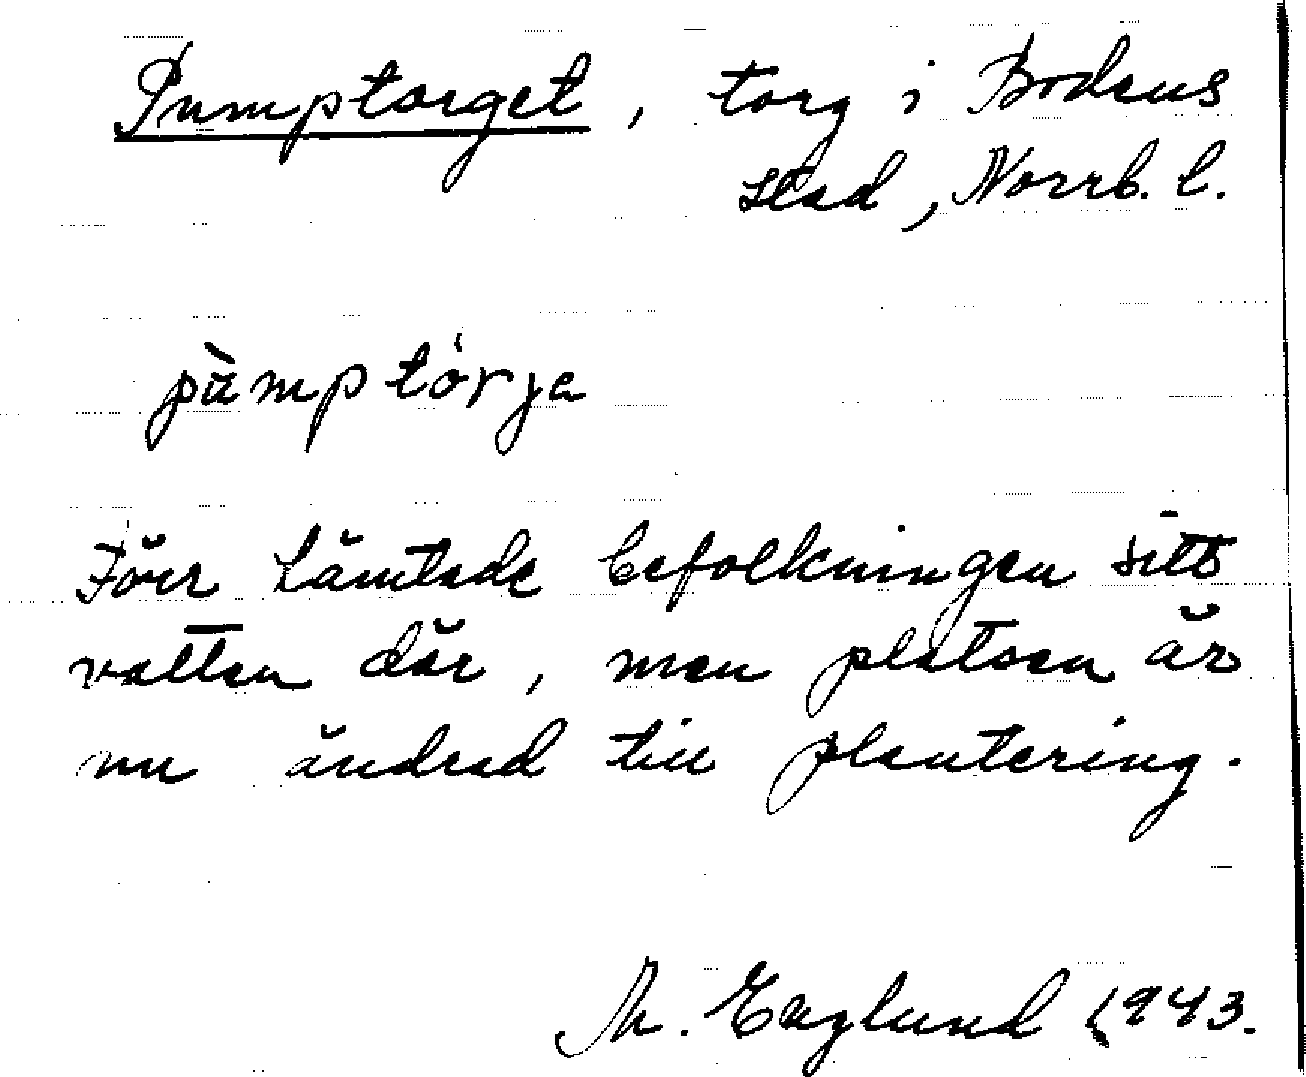 Pumptorget, torg i Bodens
stad, Norrb. l.
pùmptórja
Förr hämtade befolkningen sitt
vatten där, men platsen är
nu ändrad till plantering.
M. Englund 1943.